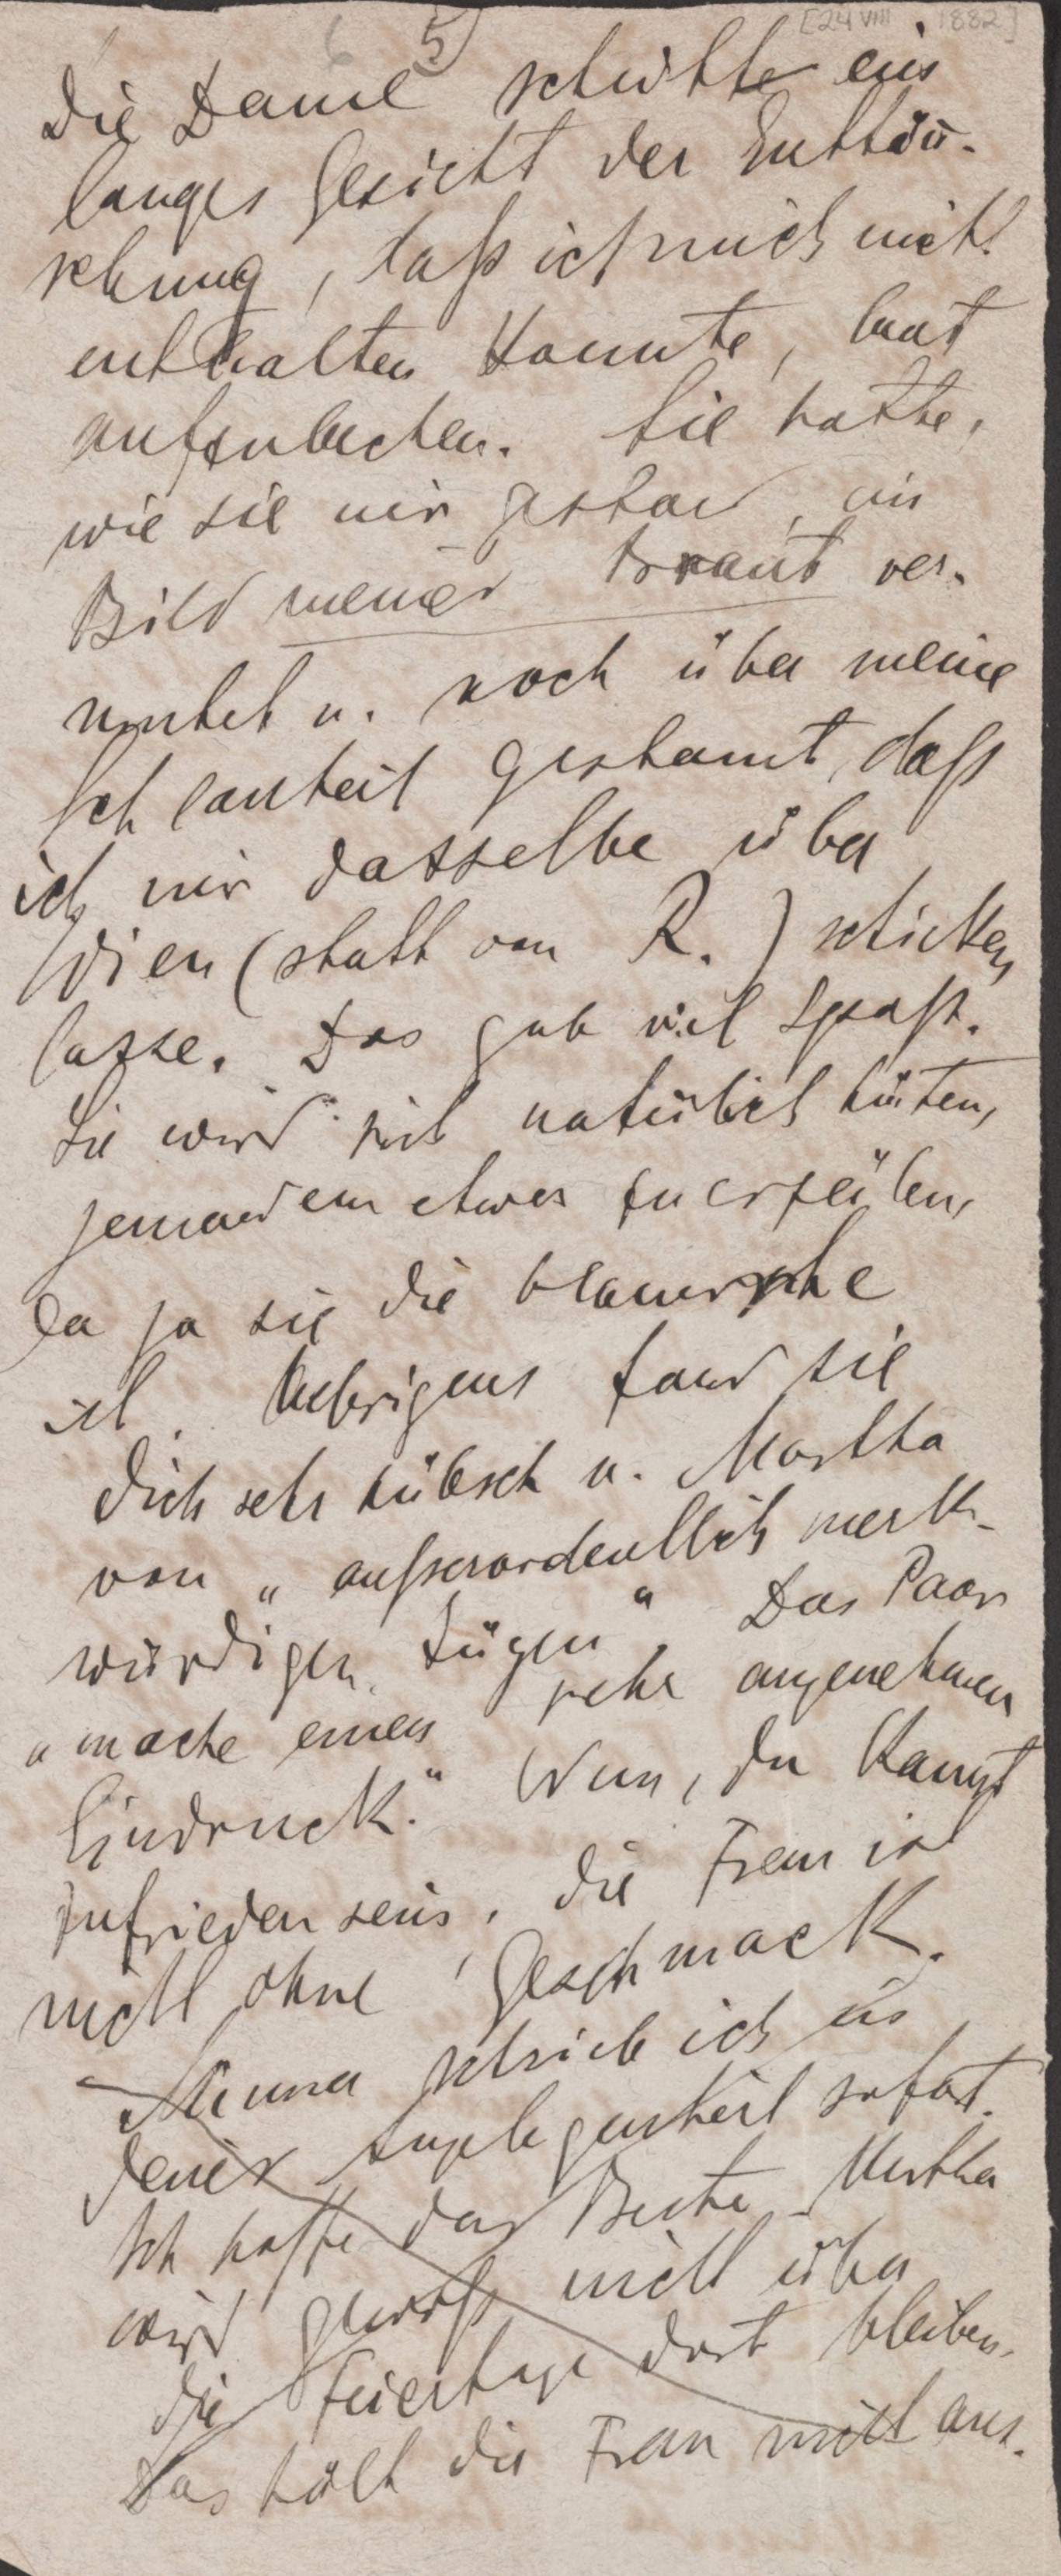 6 5) [24 VIII 1882]
Die Dame schickte ein
langes Gesicht der Enttäu-
schung, daß ich mich nicht
enthalten konnte, laut
aufzulachen. Sie hatte,
wie sie mir gestand, ein
Bild meiner Braut ver-
mutet u. noch über meine
Schlauheit gestaunt, daß
ich mir dasselbe über
Wien (statt von R.) schicken
lasse. Das gab viel Spaß.
Sie wird sich natürlich hüten,
jemandem etwas zu erzählen,
da ja sie die
ist. Uebrigens fand sie
Dich sehr hübsch u. Martha
von „außerordentlich merk-
würdigen Zügen". Das Paar
„mache einen sehr angenehmen
Eindruck." Nun, du kannst
zufrieden sein, die Frau ist
nicht ohne Geschmack.
Minna schrieb ich in
deiner Angelegenheit sofort.
Ich hoffe das Beste. Martha
wird gewiß nicht über
die Feiertage dort bleiben.
Das hält die Frau nicht aus.